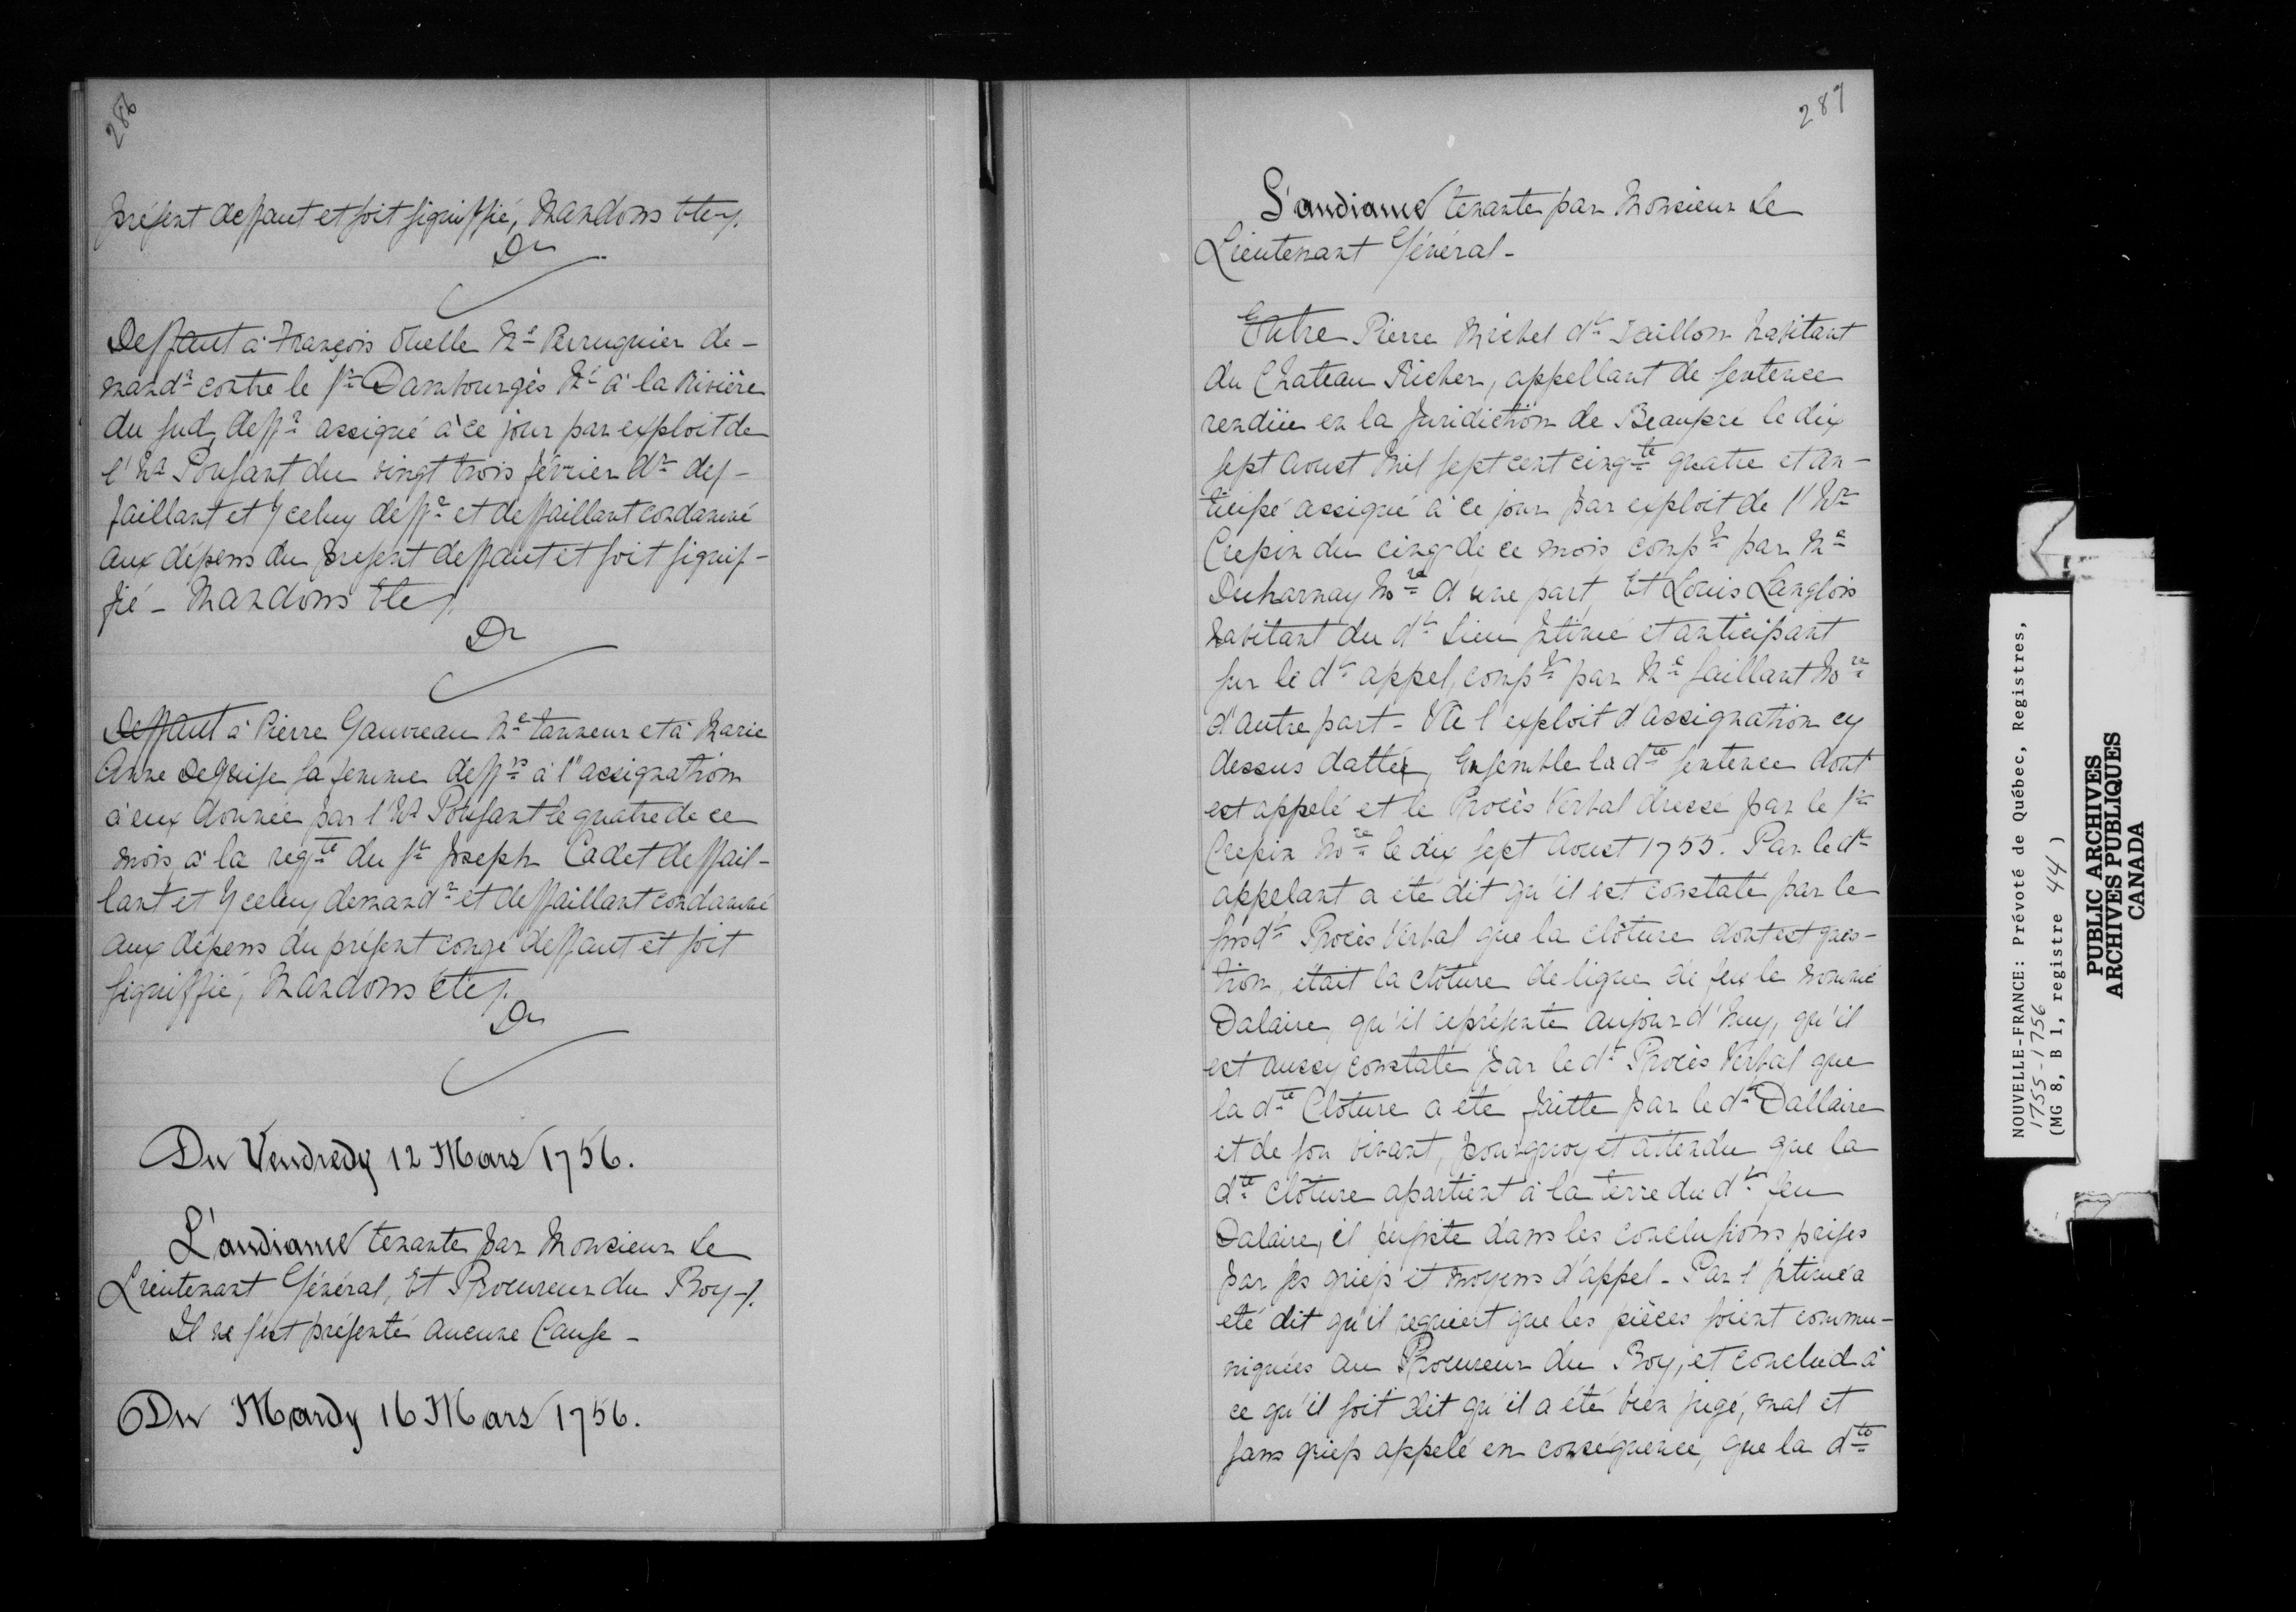 286
présent deffaut et soit signiffié, Mandons etc/.
Dn
Deffaut à François Vuelle Me Perruquier de-
mandr contre le Sr Dambourgès Né à la Rivière
du Sud, deffr assigné à ce jour par exploit de
l'hr Poussart du vingt trois février dr def-
faillant et Yceluy deffr et deffaillant condamné
aux dépens du present deffaut et soit signif-
fié - Mandons Etc/.
Dn
Deffaut à Pierre Gauvreau Me tanneur et à Marie
Anne Deguise sa femme deffrs à l'assignation
à eux donnée par l'hr Poussart le quatre de ce
mois, à la reqte du Sr Joseph Cadet deffail-
lant et Yceluy demandr et deffaillant condamné
aux dépens du présent congé deffaut et soit
signiffié, Mandons etc/.
Dn
Du Vendredy 12 Mars 1756.
L'audiance tenante par Monsieur Le
Lieutenant Général, Et Procureur du Roy-/.
Il ne s'est présenté aucune Cause -
Du Mardy 16 Mars 1756.
287
L'audiance tenante par Monsieur Le
Lieutenant Général -
Entre Pierre Michel dt Taillon habitant
du Chateau Richer, appellant de sentence
rendüe en la Juridiction de Beaupré le dix
sept aoust Mil sept cent cinqte quatre et an-
ticipé assigné à ce jour par exploit de l'hr
Crepin du cinq de ce mois compt par Me
Decharnay Nore d'une part, Et Louis Langlois
habitant du dt Lieu Intimé et anticipant
sur le dt appel, compt par Me Saillant Nore
d'autre part - Vû l'exploit d'assignation cy
dessus datté, Ensemble la dte sentence dont
est appelé et le Procès Verbal dressé par le Sr
Crepin Nore le dix sept Aoust 1755. Par le dt
appelant a été dit qu'il est constaté par le
susdt Procès Verbal que la clôture dont est ques-
tion, était la clôture de ligne de feu le nommé
Dalaire, qu'il représente aujourd'huy, qu'il
est aussy constaté par le dt Procès Verbal que
la dte Cloture a eté faitte par le dt Dallaire
et de son vivant, pourquoy et attendu que la
dte clôture apartient à la terre du dt feu
Dalaire, il persiste dans les conclusions prises
par ses griefs et moyens d'appel - Par l'Intimé a
eté dit qu'il requiert que les pièces soient commu-
niquées au Procureur du Roy, et conclud à
ce qu'il soit dit qu'il a été bien jugé, mal et
sans griefs appelé en conséquence, que la dte
NOUVELLE-FRANCE: Prévoté de Québec, Registres,
1755-1756
(MG 8, B 1, registre 44)
PUBLIC ARCHIVES
ARCHIVES PUBLIQUES
CANADA